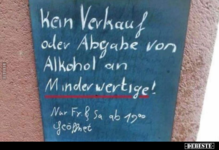 Kein Verkauf
oder Abgabe von
Alkohol an
Minderwertige!
Nur Fr & Sa ab 19⁰⁰
geöffnet
DEBESTE